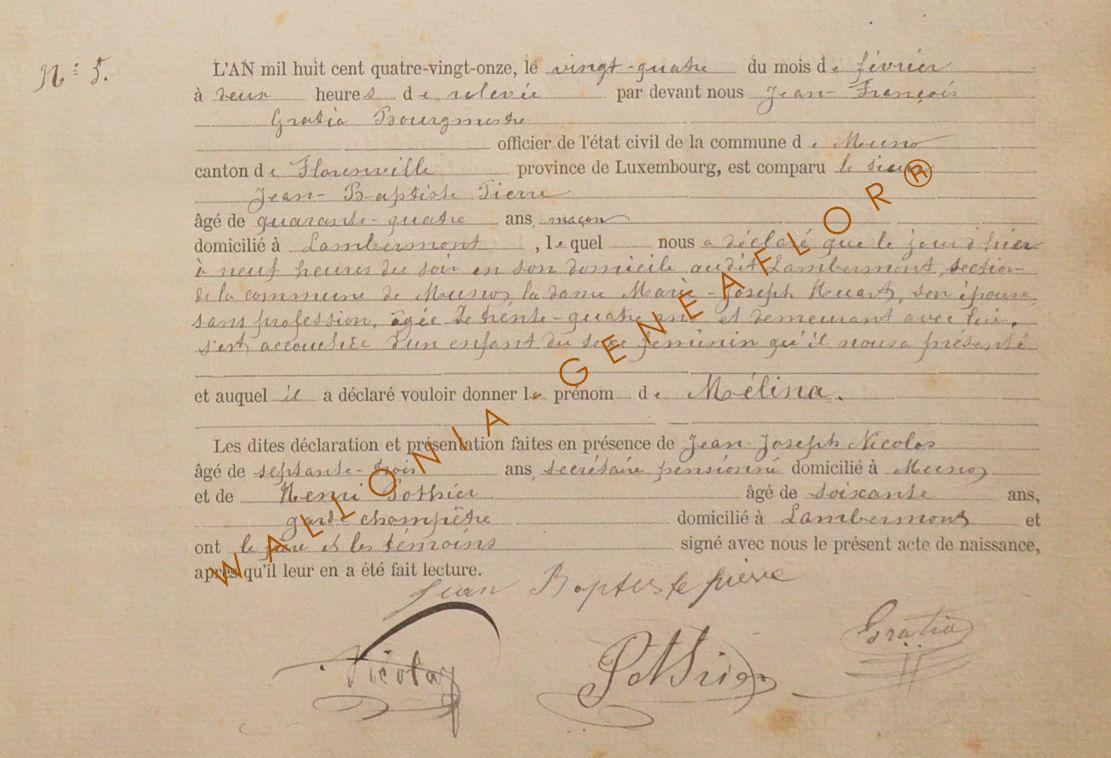 N° 5.
L'AN mil huit cent quatre-vingt-onze, le vingt-quatre du mois de février
à deux heures de relevée par devant nous Jean-François
Gratia Bourgmestre
officier de l'état civil de la commune de Muno
canton de Florenville province de Luxembourg, est comparu le sieur
Jean-Baptiste Pierre
âgé de quarante-quatre ans, maçon
domicilié à Lambermont, lequel nous a déclaré que le jour d'hier
à neuf heures du soir en son domicile audit Lambermont, section
de la commune de Muno, la dame Marie-Joseph Huart, son épouse,
sans profession, âgée de trente-quatre ans et demeurant avec lui,
s'est accouchée d'un enfant du sexe féminin qu'il nous a présenté
et auquel il a déclaré vouloir donner le prénom de Mélina.
Les dites déclaration et présentation faites en présence de Jean-Joseph Nicolas
âgé de septante-trois ans, secrétaire pensionné domicilié à Muno,
et de Henri Pothier âgé de soixante ans,
garde champêtre domicilié à Lambermont et
ont le père et les témoins signé avec nous le présent acte de naissance,
après qu'il leur en a été fait lecture.
Jean Baptiste pierre
Nicolas Pothier Gratia
WALLONIA GENEAFLOR®